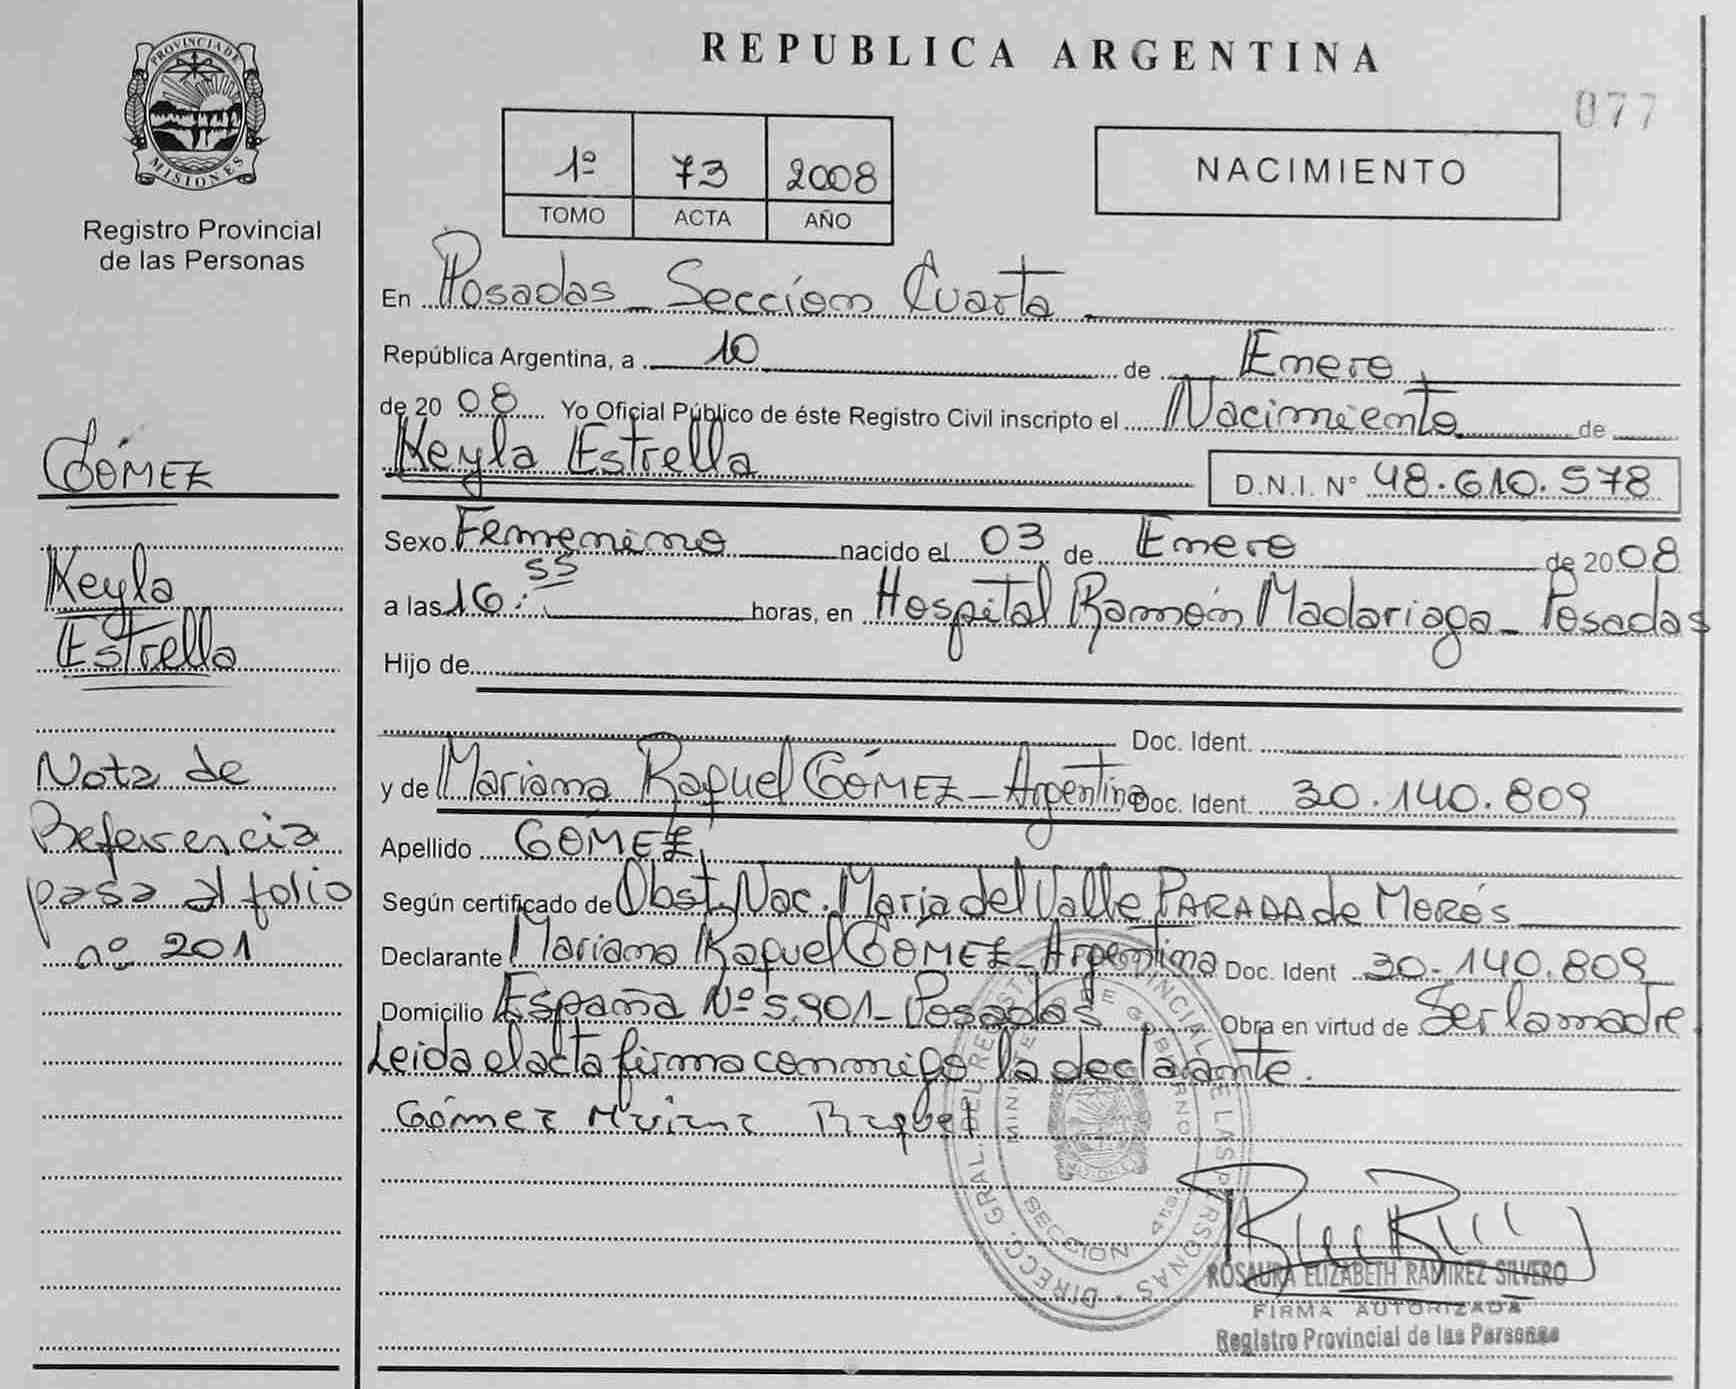 PROVINCIA DE
MISIONES
Registro Provincial
de las Personas
GÓMEZ
Keyla
Estrella
Nota de
Referencia
pasa al folio
nº 201
REPUBLICA ARGENTINA
077
1º 73 2008
TOMO ACTA AÑO
NACIMIENTO
En Posadas - Sección Cuarta
República Argentina, a 10 de Enero
de 20 08 Yo Oficial Público de éste Registro Civil inscripto el Nacimiento de
Keyla Estrella D.N.I. Nº 48.610.578
Sexo Femenino nacido el 03 de Enero de 2008
a las 16:55 horas, en Hospital Ramón Madariaga - Posadas
Hijo de
Doc. Ident.
y de Mariana Raquel GÓMEZ - Argentina Doc. Ident. 30.140.809
Apellido GÓMEZ
Según certificado de Obst. Nac. María del Valle PARADA de MORÉS
Declarante Mariana Raquel GÓMEZ - Argentina Doc. Ident 30.140.809
Domicilio España Nº 5.901 - Posadas Obra en virtud de Ser la madre.
Leida el acta firma conmigo la declarante.
Gómez Mariana Raquel
DIRECC. GRAL. DEL REGISTRO PROVINCIAL DE LAS PERSONAS
MINISTERIO DE GOBIERNO
SECCION 4ta
ROSAURA ELIZABETH RAMIREZ SILVERO
FIRMA AUTORIZADA
Registro Provincial de las Personas